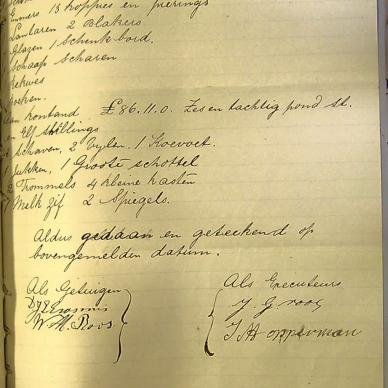 13 koppies en pierings
Lantaren 2 Blakers
Glazen 1 Schenk bord.
Schaap scharen
kontand £86.11.0. Zes en tachtig pond st.
en Elf shillings
Schaven, 2 Vylen, 1 Koevoet.
1 Groote schottel
2 Trommels 4 kleine kasten
Melk zif 2 Spiegels.
Aldus gedaan en geteekend op
bovengemelden datum.
Als Getuigen Als Executeurs
Erasmus J. G. roos
W. M. Roos J A opperman